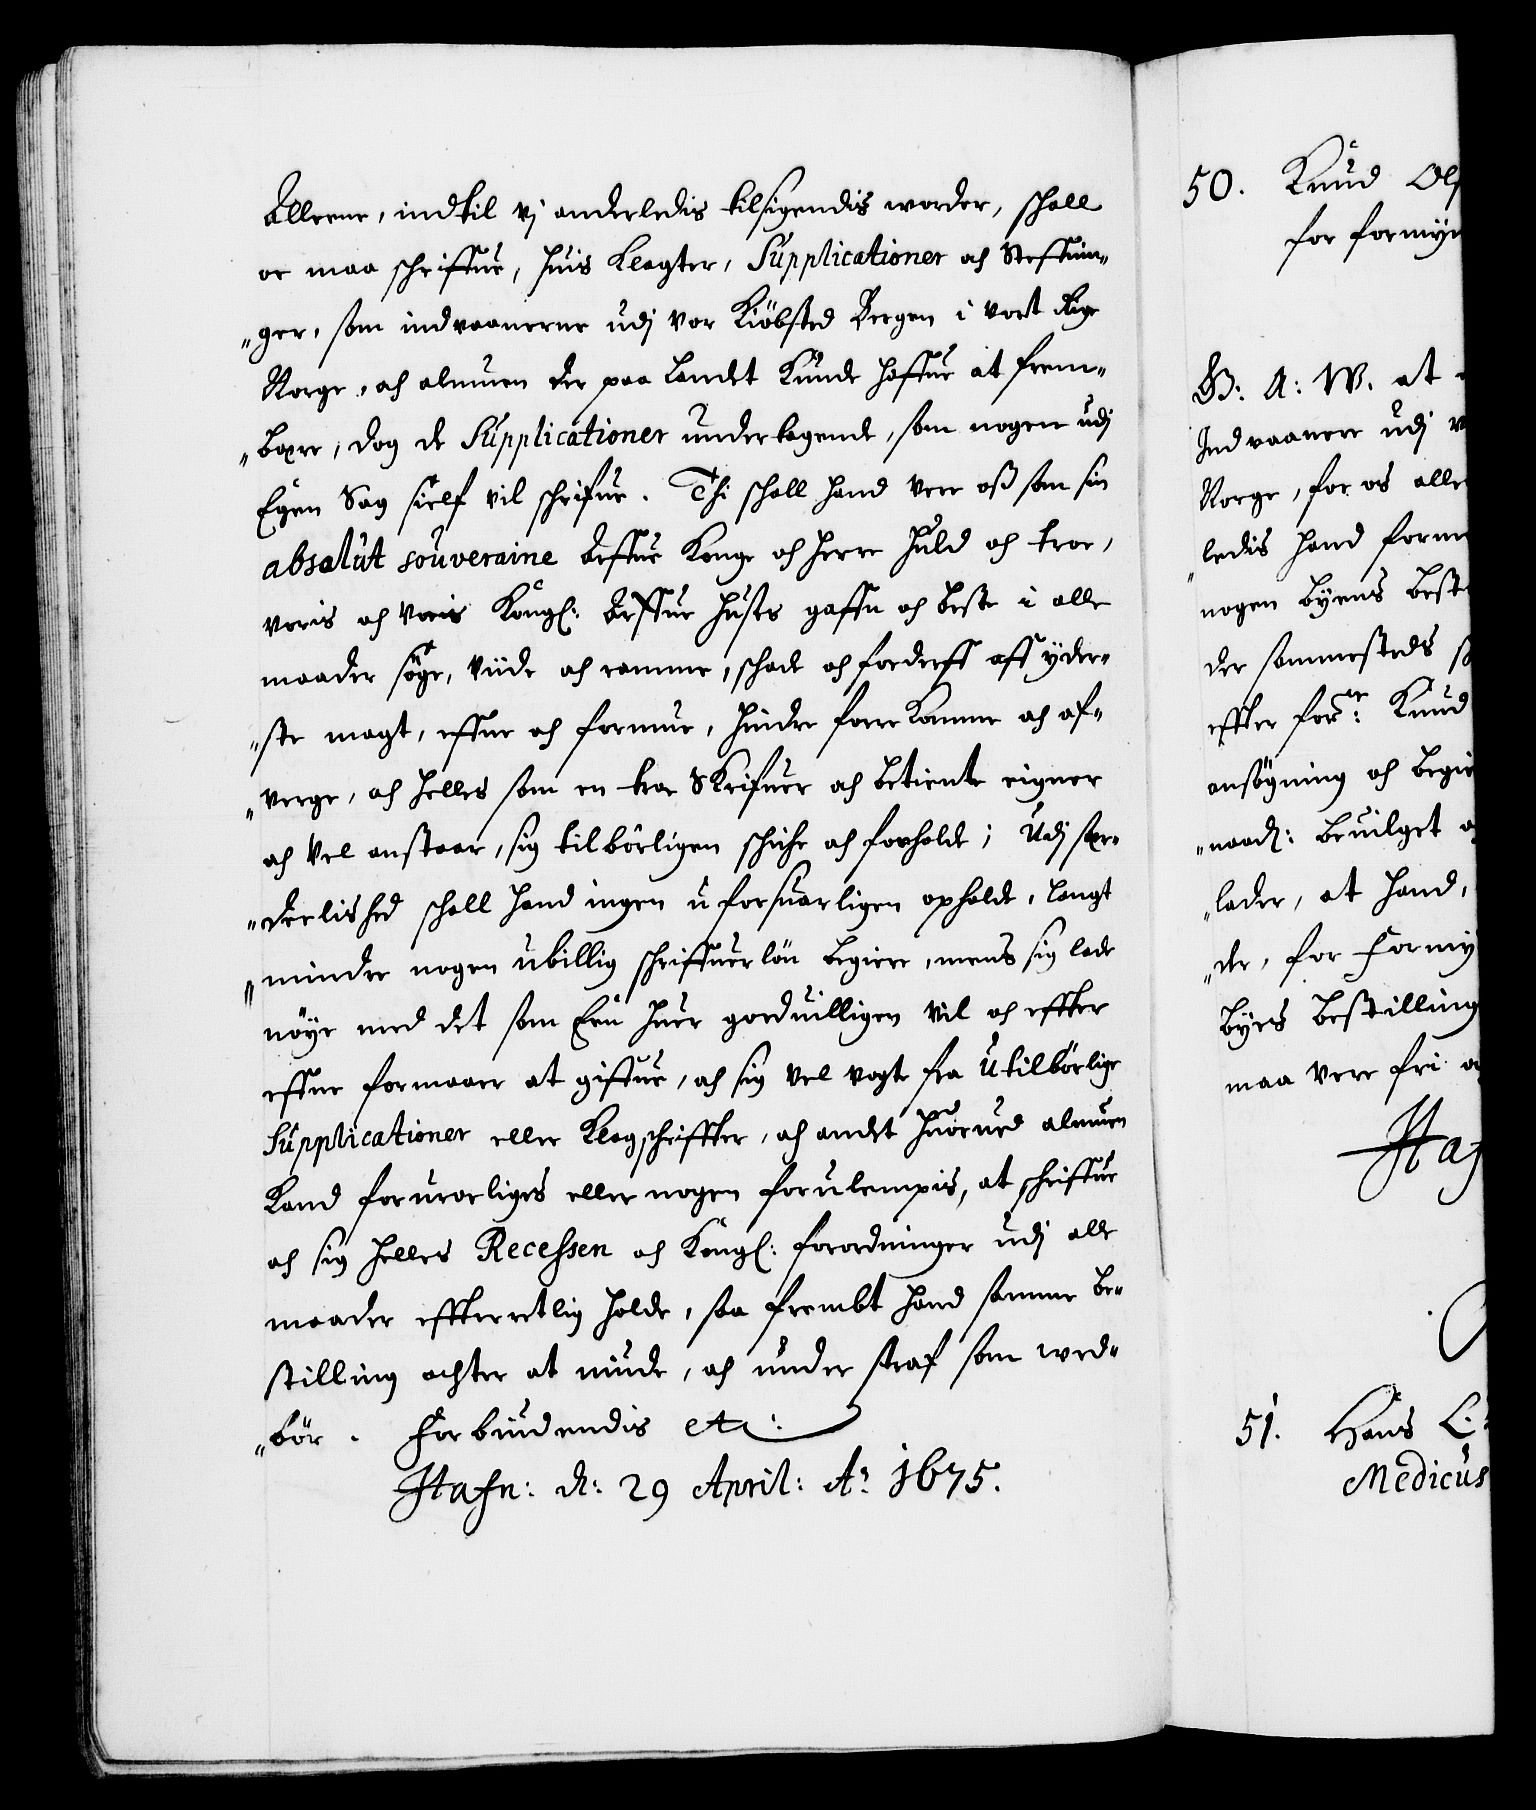 Allerne, indtil vj anderledis tilsigendis worder, schall
oc maa schriffue, huis Klagter, Supplicationer och Steffnin-
ger, som indvaanerne udj vor Kiöbsted Bergen i vort Rige
Norge, och almuen der paa Landet Kunde haffue at frem-
bære, dog de Supplicationer undertagende, som nogen udj
Egen Sag sielf vil schrifue. Thi schall hand vere oss som sin
absolut souveraine Arffue Konge och Herre huld och troe,
voris och voris Kongl: Arffue Huses gaffn och beste i alle
maader söge, viide och ramme, schade och forderff aff yder-
ste magt, effne och formue, hindre forre Komme och af-
verge, och helles som en troe Skrifuer och betiente eigner
och vel anstaar, sig tilbörligen schiche och forholde; Udj sær-
deelished schall hand ingen uforsuarligen opholde, langt
minder nogen ubillig schriffuer lön begiere, mens sig lade
nöye med det som Een huer goeduilligen vil och effter
effne formaaer at giffue, och sig vel vogte fra Utilbörlige
Supplicationer eller Klagschriffter, och andet huorued almuen
Kand foruroeliges eller nogen forulempis, at schriffue
och sig helles Recessen och Kongl: forordninger udj alle
maader effterretlig holde, saa frembt hand samme be-
stilling achter at niude, och under straf som wed-
bör. Forbiudendis etc:
Hafn: d: 29 April: Ao 1675.
50. Knud Ol
for formyn
G: A: W. at
Indvaanere udj v
Norge, for os aller
ledis hand forme
nogen Byens best
der sammesteds s
effter forne: Knud
ansögning och begie
naad: beuilget o
lader, at hand,
de, for Formy
Byes bestilling
maa vere fri o
Haf
51. Hans C:
Medicus